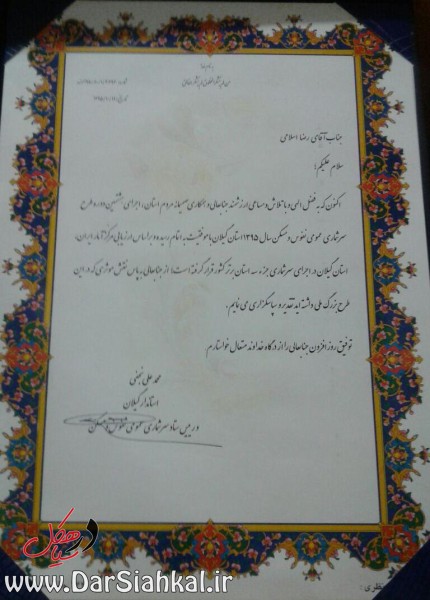 جناب آقای رضا اسلامی
سلام علیکم؛
اکنون که به فضل الهی و با تلاش و مساعی ارزشمند جنابعالی و همکاری صمیمانه مردم استان، اجرای هشتمین دوره طرح
سرشماری عمومی نفوس و مسکن سال ۱۳۹۵ استان گیلان با موفقیت به اتمام رسیده و براساس ارزیابی مرکز آمار ایران،
استان گیلان در اجرای سرشماری جزء سه استان برتر کشور قرار گرفته است؛ از جنابعالی به پاس نقش موثری که در این
طرح بزرگ ملی داشته اید تقدیر و سپاسگزاری می نمایم.
توفیق روز افزون جنابعالی را از درگاه خداوند متعال خواستارم
محمد علی نجفی
استاندار گیلان
و رییس ستاد سرشماری عمومی نفوس و مسکن
www.DarSiahkal.ir
نظری: